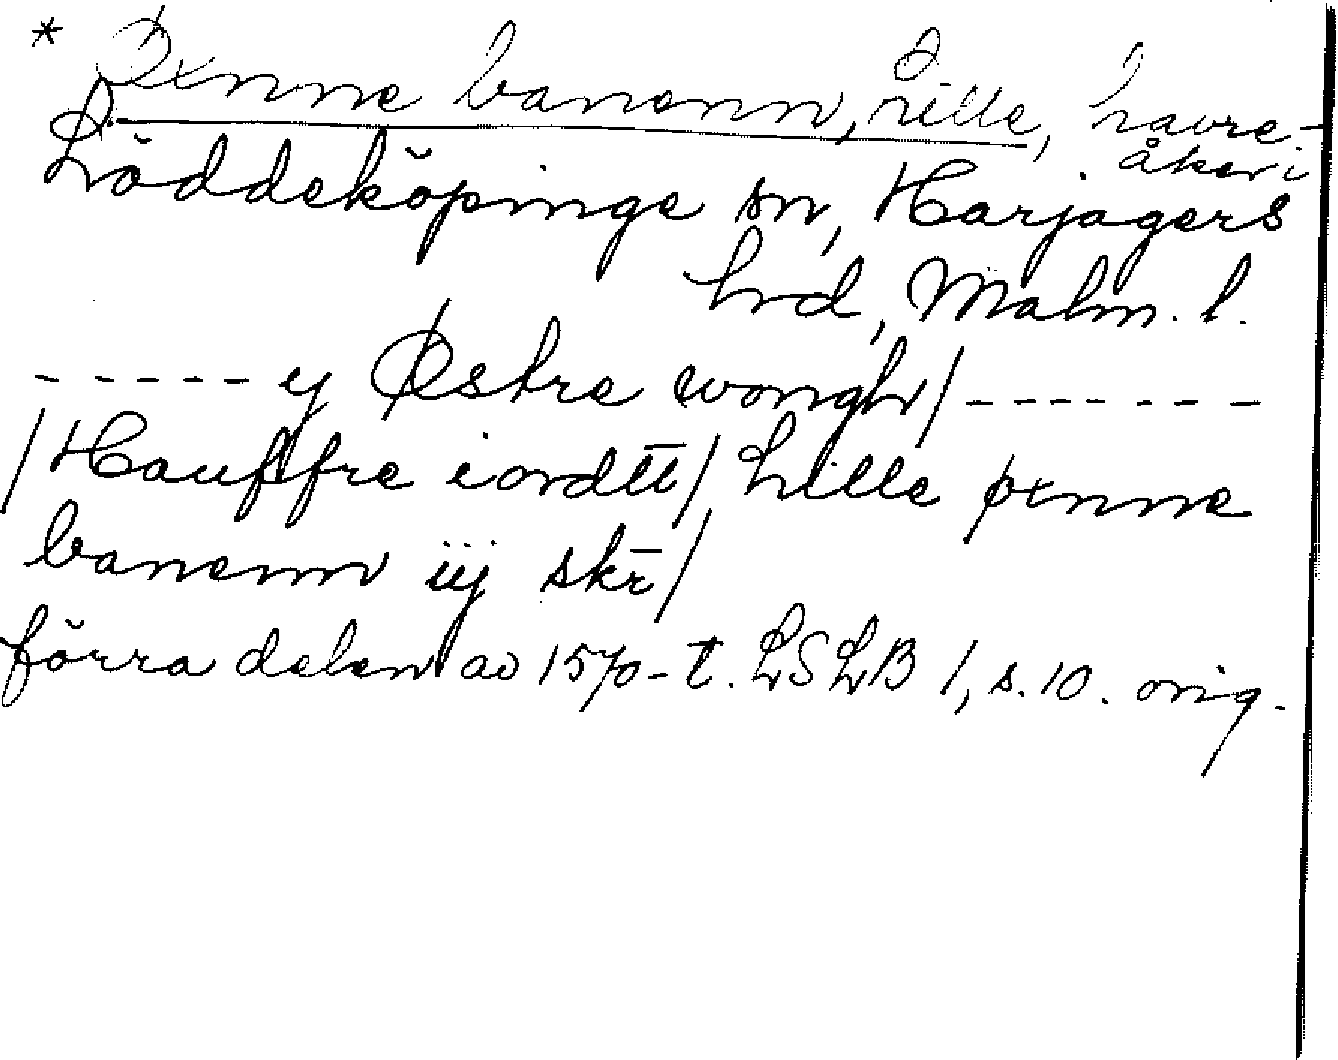 * Pinne banenn, Lille, havre-
åker i
Löddeköpinge sn, Harjagers
hrd, Malm. l.
- - - - - y Østre wongh/ - - - - - - -
/Hauffre iordtt/ Lille pinne
banenn iij skr̄/
förra delen av 1570-t. LSLB 1, s. 10. orig.